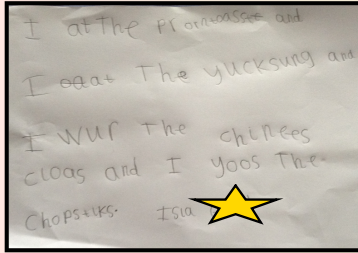 I at The prorntoassee and
I oaat The yucksung and
I wur the chinees
cloas and I yoos The.
Chopstiks. Isla